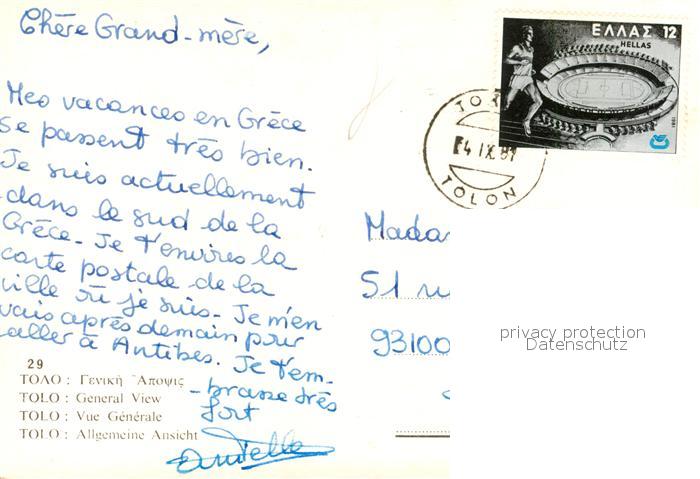 Chère Grand-mère,
Mes vacances en Grèce
se passent très bien.
Je suis actuellement
dans le sud de la
Grèce. Je t'envoies la
carte postale de la
ville où je suis. Je m'en
vais après demain pour
aller à Antibes. Je t'em-
-brasse très
fort
29
ΤΟΛΟ : Γενικὴ Ἄποψις
TOLO : General View
TOLO : Vue Générale
TOLO : Allgemeine Ansicht
ΕΛΛΑΣ 12
HELLAS
1981
TOLON
Mada
51 ru
93100
privacy protection
Datenschutz